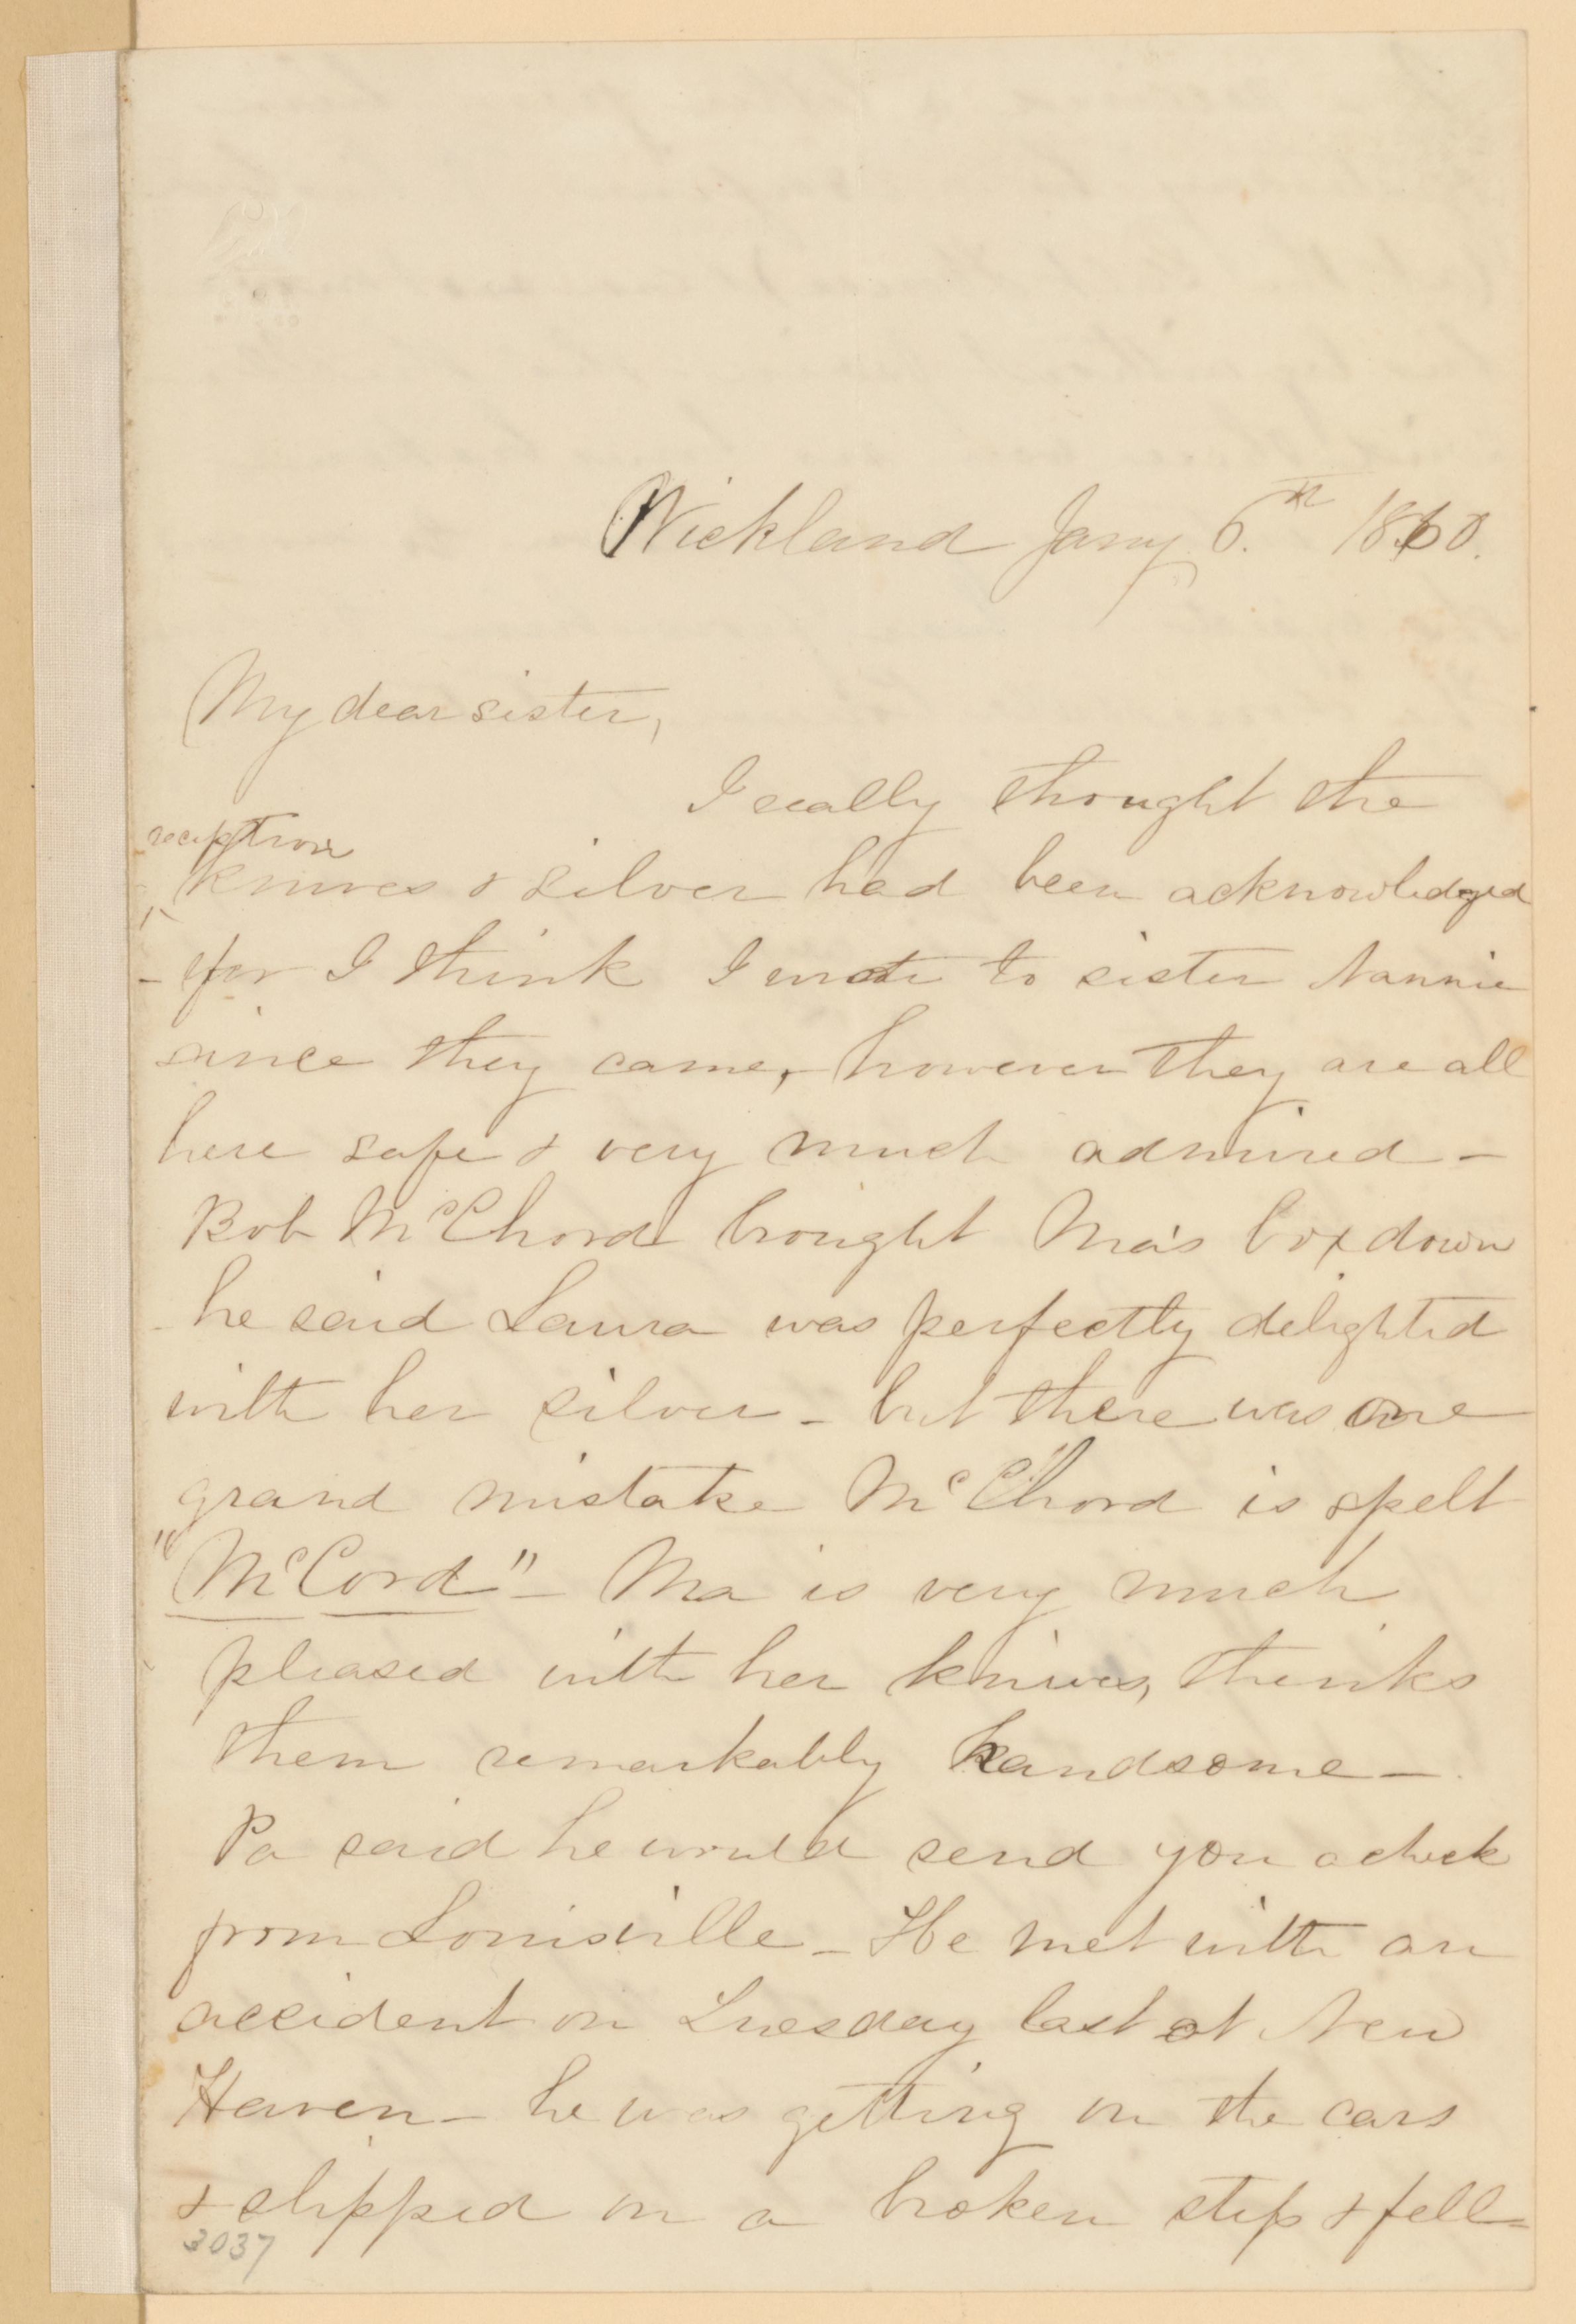 Wickland Jany 6.th 1860.
My dear sister,
I really thought the
reception
knives & silver had been acknowledged
- for I think I wrote to sister Nannie
since they came, however they are all
here safe & very much admired -
Bob McChord brought Ma's box down
he said Laura was perfectly delighted
with her silver - but there was one
grand mistake McChord is spelt
"McCord" - Ma is very much
pleased with her knives, thinks
them remarkably handsome -
Pa said he would send you a check
from Louisville - He met with an
accident on Tuesday last at New
Haven - he was getting on the cars
& slipped on a broken step & fell -
3037